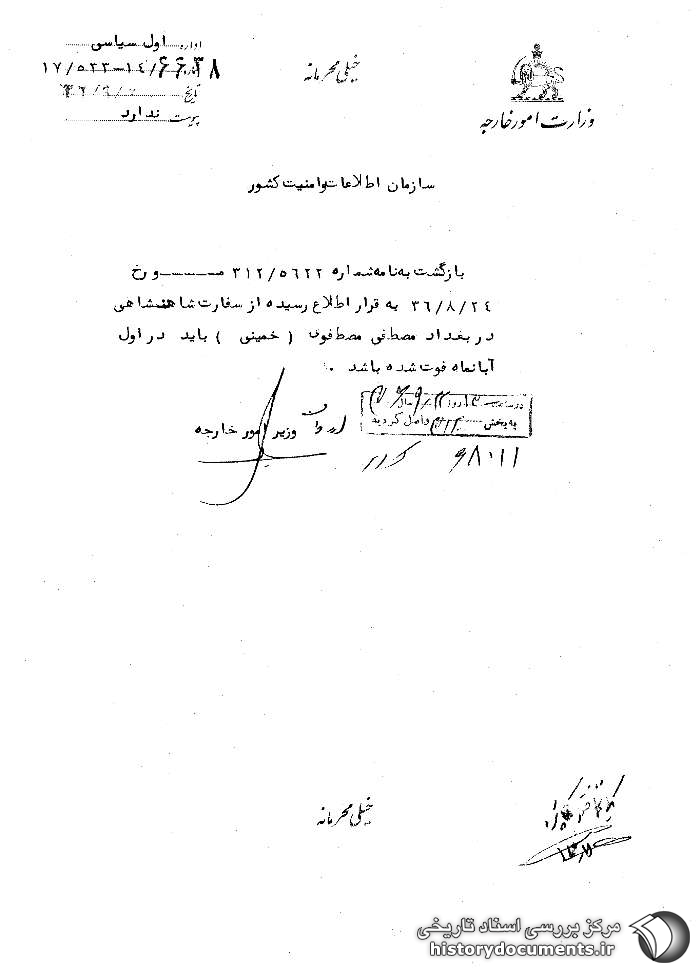 اداره اول سیاسی
شماره ۱۷/۵۲۳-۱۴/۶۶۳۸
تاریخ
پیوست ندارد
خیلی محرمانه
وزارت امور خارجه
سازمان اطلاعات و امنیت کشور
بازگشت به نامه شماره ۳۱۲/۵۶۲۲ مــــورخ
۳۶/۸/۲۴ به قرار اطلاع رسیده از سفارت شاهنشاهی
در بغداد مصطفی مصطفوی ( خمینی ) باید در اول
آبانماه فوت شده باشد .
وزیر امور خارجه
به بخش ۳۱۲ واصل گردید
خیلی محرمانه
مرکز بررسی اسناد تاریخی
historydocuments.ir